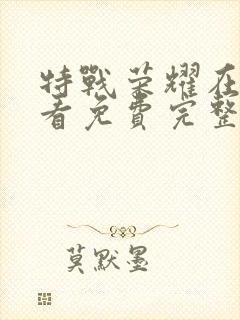 特戰荣耀在
看免費完整
莫默墨